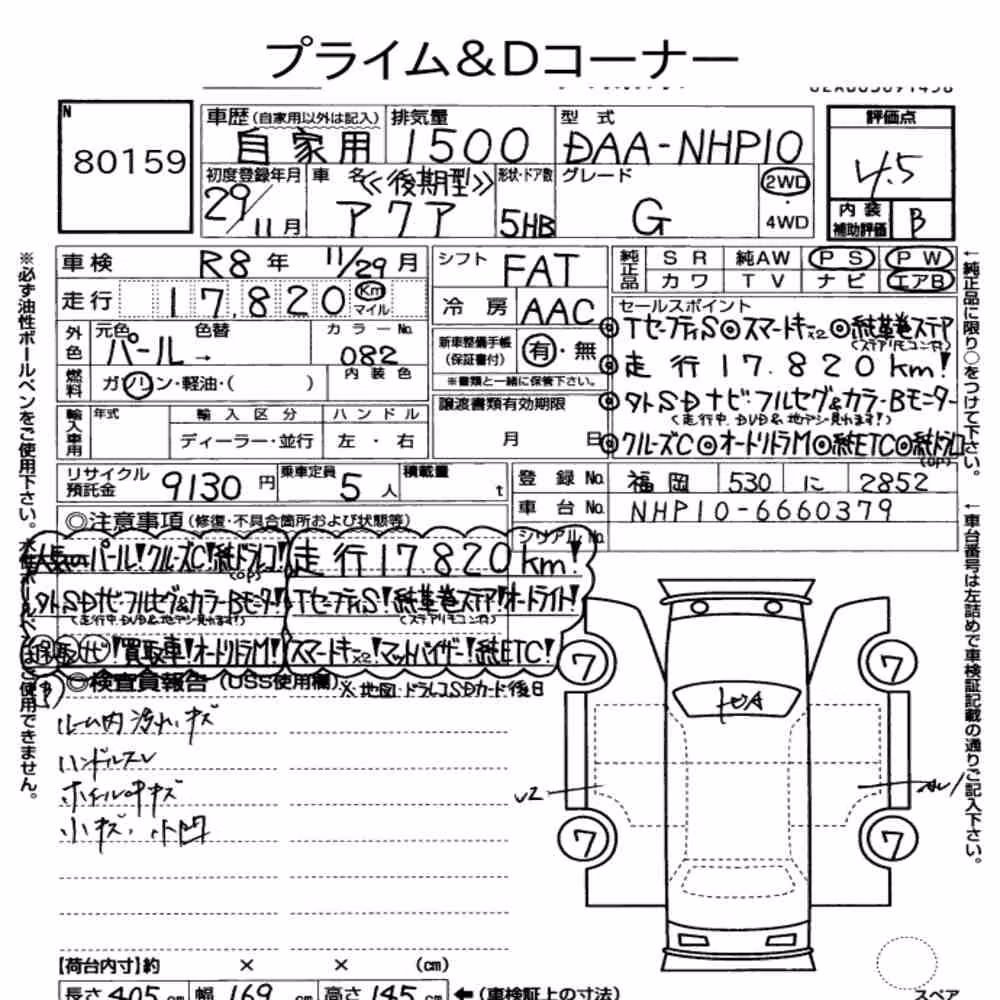 プライム&Dコーナー
N
80159
車歴(自家用以外は記入)
自家用
排気量
1500
型式
DAA-NHP10
評価点
4.5
内装
補助評価
B
初度登録年月
29/11月
車名
≪後期型≫
アクア
形状・ドア数
5HB
グレード
G
2WD
・
4WD
車検
R8年 11/29月
走行
17,820 Km
マイル
シフト
FAT
冷房
AAC
純正品
SR 純AW PS PW
カワ TV ナビ エアB
外色
元色
パール→
色替
カラーNo.
082
燃料
ガソリン・軽油・( )
内装色
新車整備手帳
(保証書付)
有・無
※書類と一緒に保管下さい。
セールスポイント
◎TセーフティS◎スマートキーx2◎純革巻ステア
(ステアリモコン付)
◎走行17.820km!
◎外SDナビ・フルセグ&カラーBモニター
(走行中、DVD&地デジ見れます!)
◎クルーズC◎オートリトラM◎純ETC◎純ドラレコ
(OP)
輸入車用
年式
輸入区分
ディーラー・並行
ハンドル
左・右
譲渡書類有効期限
月 日
リサイクル
預託金
9130円
乗車定員
5人
積載量
t
登録No.
福岡 530 に 2852
車台No.
NHP10-6660379
シリアルNo.
◎注意事項(修復・不具合箇所および状態等)
パール!クルーズC!純ドラレコ!
(OP)
走行17820km!
外SDナビ・フルセグ&カラーBモニター!
(走行中、DVD&地デジ見れます!)
TセーフティS!純革巻ステア!オートライト!
(ステアリモコン付)
保取ナビ!買取車!オートリトラM!
スマートキーx2!マットバイザー!純ETC!
◎検査員報告(USS使用欄)
※地図・ドラレコSDカード後日
ルーム内汚れ、キズ
ハンドルスレ
ホイールキズ
小キズ、小凹
トヨタ
7
7
7
7
U2
【荷台内寸】約 × × (cm)
長さ405cm 幅169cm 高さ145cm
←(車検証上の寸法)
スペア
※必ず油性ボールペンをご使用下さい。
ご使用できません。
←純正品に限り○をつけて下さい。
←車台番号は左詰めで車検証記載の通りご記入下さい。